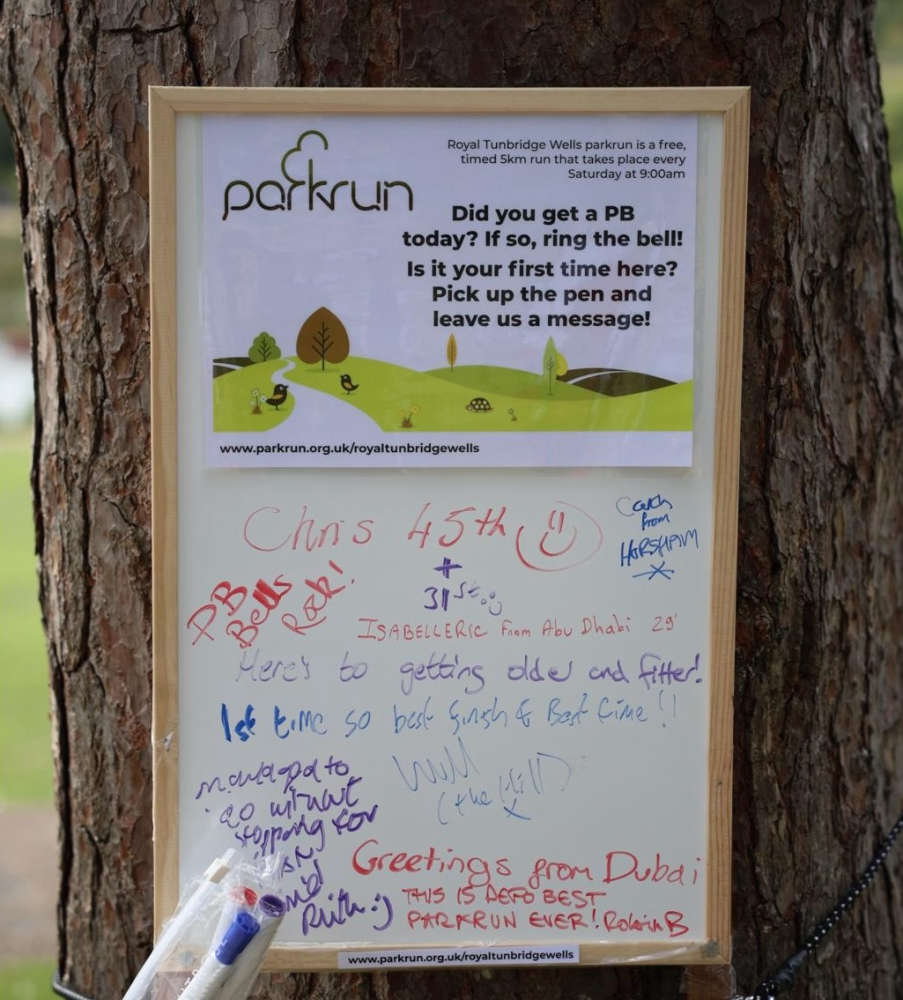 parkrun
Royal Tunbridge Wells parkrun is a free,
timed 5km run that takes place every
Saturday at 9:00am
Did you get a PB
today? If so, ring the bell!
Is it your first time here?
Pick up the pen and
leave us a message!
www.parkrun.org.uk/royaltunbridgewells
Chris 45th
from
HORSHAM
X
+
31st
PB
Bells
Rock!
ISABELLERIC From Abu Dhabi 29'
Here's to getting older and fitter!
1st time so best finish & Best time!!
Will
(the Hill)
x
managed to
go without
stopping for
Ruth :)
Greetings from Dubai
THIS IS DEFO BEST
PARKRUN EVER! Robin B
www.parkrun.org.uk/royaltunbridgewells